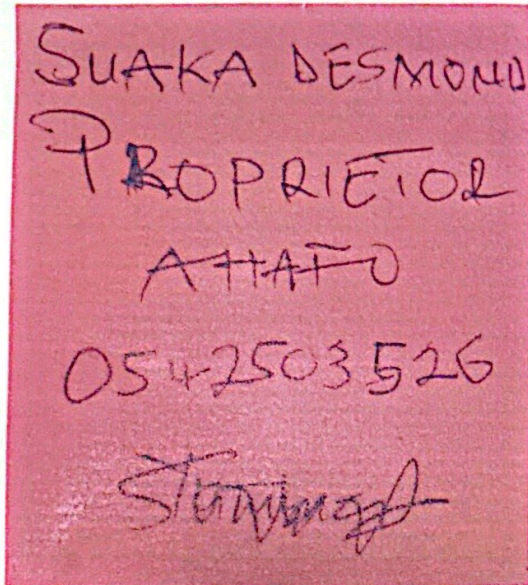 SUAKA DESMOND
PROPRIETOR
AHAFO
0542503526